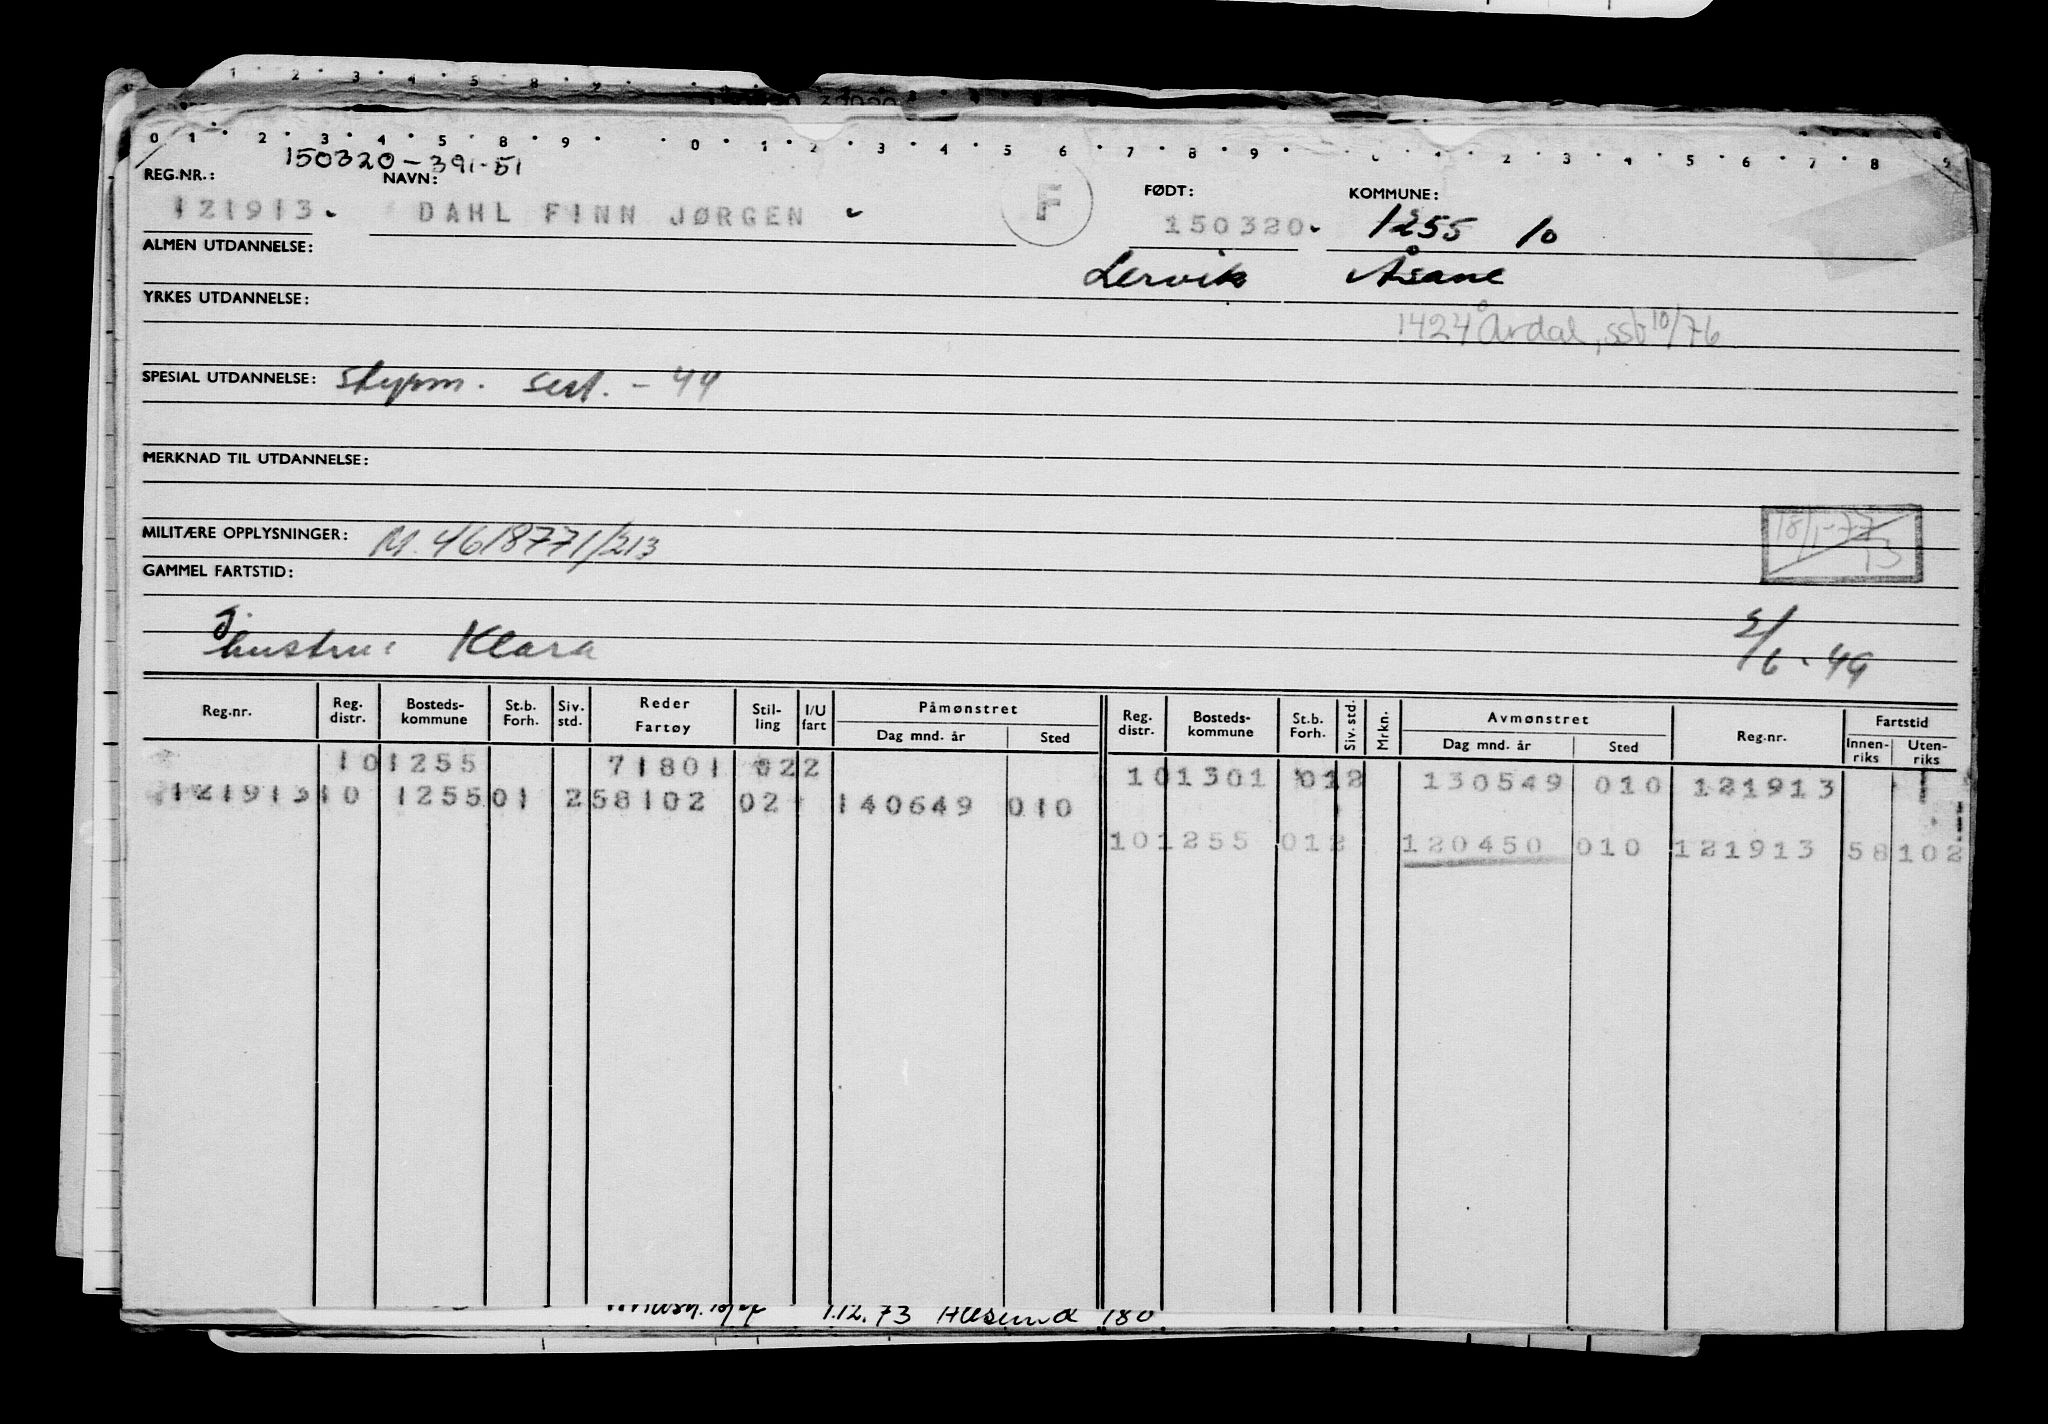 0 1 2 3 4 5 8 9 0 1 2 3 4 5 6 7 8 9 2 3 4 5 6 7 8 9
150320-391-51
REG.NR.: NAVN: FØDT: KOMMUNE:
121913 DAHL FINN JØRGEN F 150320 1255 10
ALMEN UTDANNELSE: Lervik Åsane
YRKES UTDANNELSE:
1424 Årdal, ssb 10/76
SPESIAL UTDANNELSE: styrm. sert. - 44
MERKNAD TIL UTDANNELSE:
MILITÆRE OPPLYSNINGER: M. 4618771/213
18/1-77
13
GAMMEL FARTSTID:
hustru: Klara
2/6-49
Reg.nr. Reg. distr. Bosteds-kommune St.b. Forh. Siv. std. Reder Fartøy Stil-ling I/U fart Påmønstret Dag mnd. år Sted Reg. distr. Bosteds-kommune St.b. Forh. Siv. std. Mrkn. Avmønstret Dag mnd. år Sted Reg.nr. Fartstid Innen-riks Uten-riks
10 1255 71801 022 10 1301 012 130549 010 121913
121913 10 1255 01 2 58102 02 140649 010
10 1255 012 120450 010 121913 58102
1.12.73 Ålesund 180